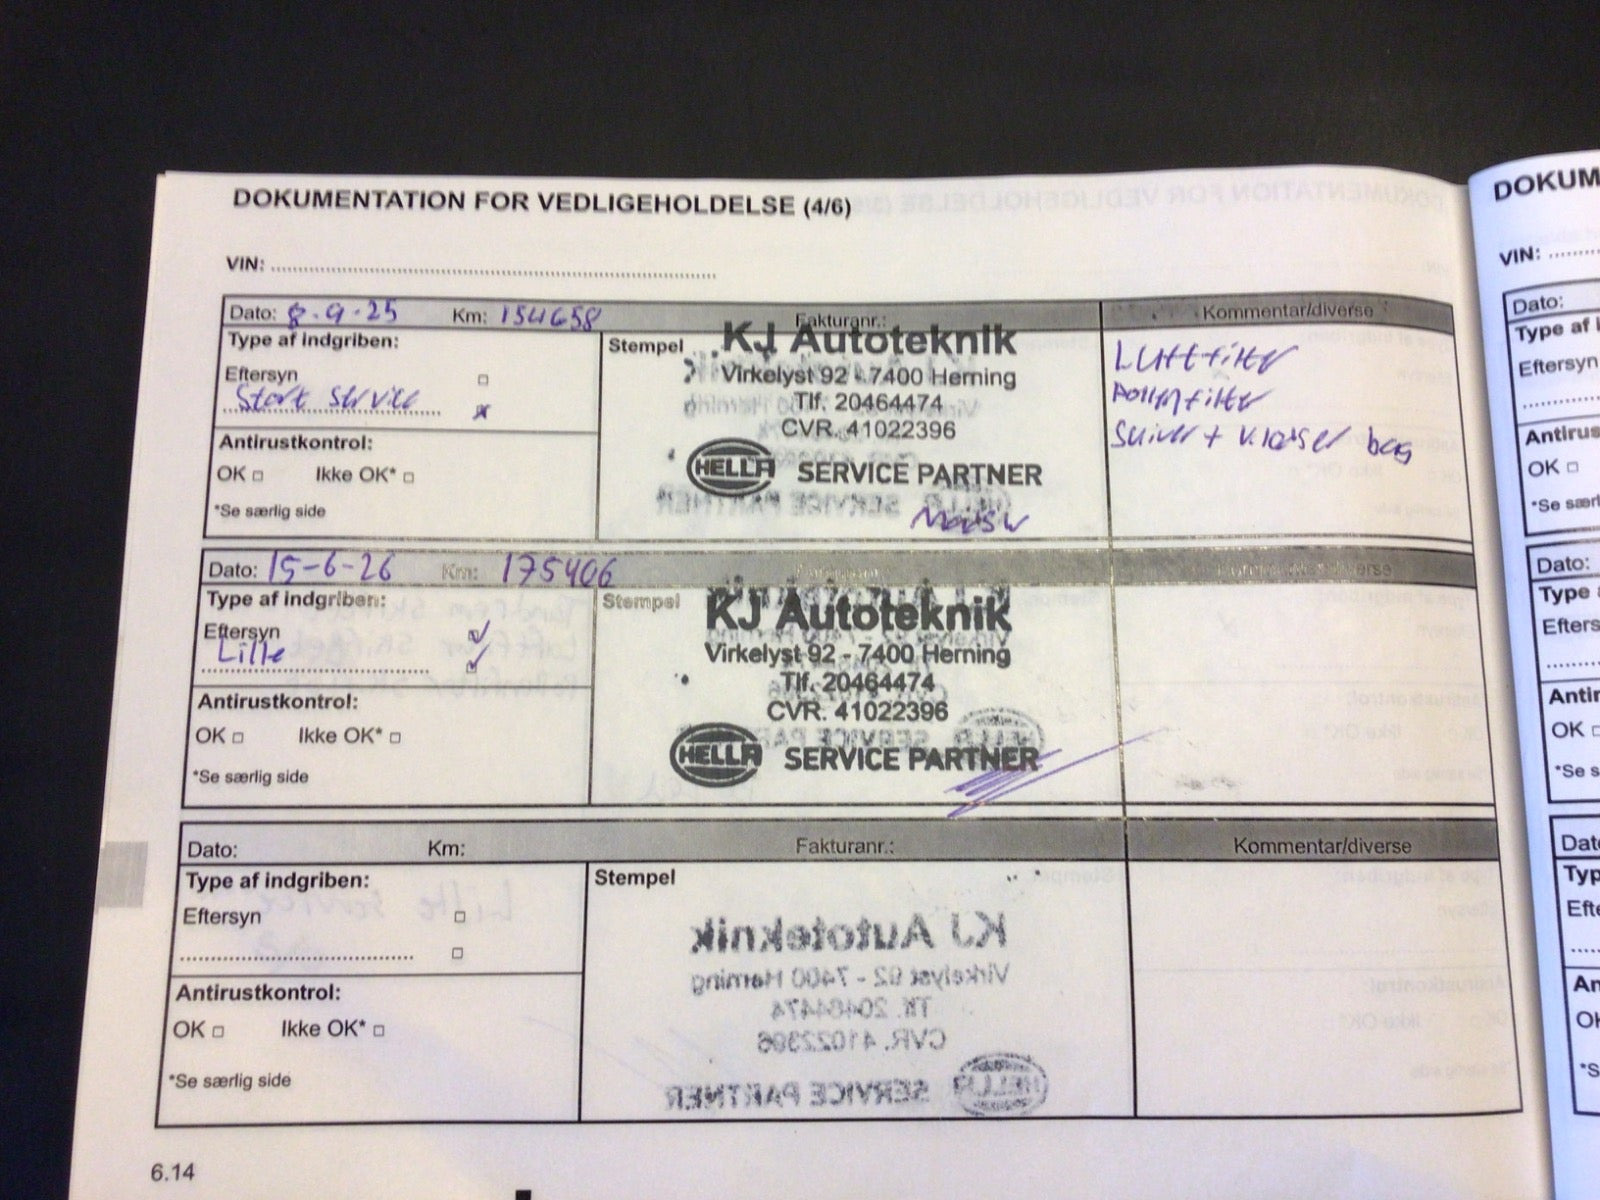 DOKUMENTATION FOR VEDLIGEHOLDELSE (4/6)
VIN:
Dato: 8-9-25 Km: 154658 Fakturanr.: Kommentar/diverse
Type af indgriben:
Eftersyn
Stort service
Antirustkontrol:
OK Ikke OK*
*Se særlig side
Stempel
KJ Autoteknik
Virkelyst 92 - 7400 Herning
Tlf. 20464474
CVR. 41022396
HELLA SERVICE PARTNER
Luftfilter
Pollenfilter
Skiver + klodser bag
Dato: 15-6-26 Km: 175406
Type af indgriben:
Eftersyn
Lille
Antirustkontrol:
OK Ikke OK*
*Se særlig side
Stempel
KJ Autoteknik
Virkelyst 92 - 7400 Herning
Tlf. 20464474
CVR. 41022396
HELLA SERVICE PARTNER
Dato: Km: Fakturanr.: Kommentar/diverse
Type af indgriben:
Eftersyn
Antirustkontrol:
OK Ikke OK*
*Se særlig side
Stempel
6.14
DOKUM
VIN:
Dato:
Type af i
Eftersyn
Antirus
OK
*Se særl
Dato:
Type
Efters
Antir
OK
*Se s
Dat
Typ
Efte
An
OK
*S